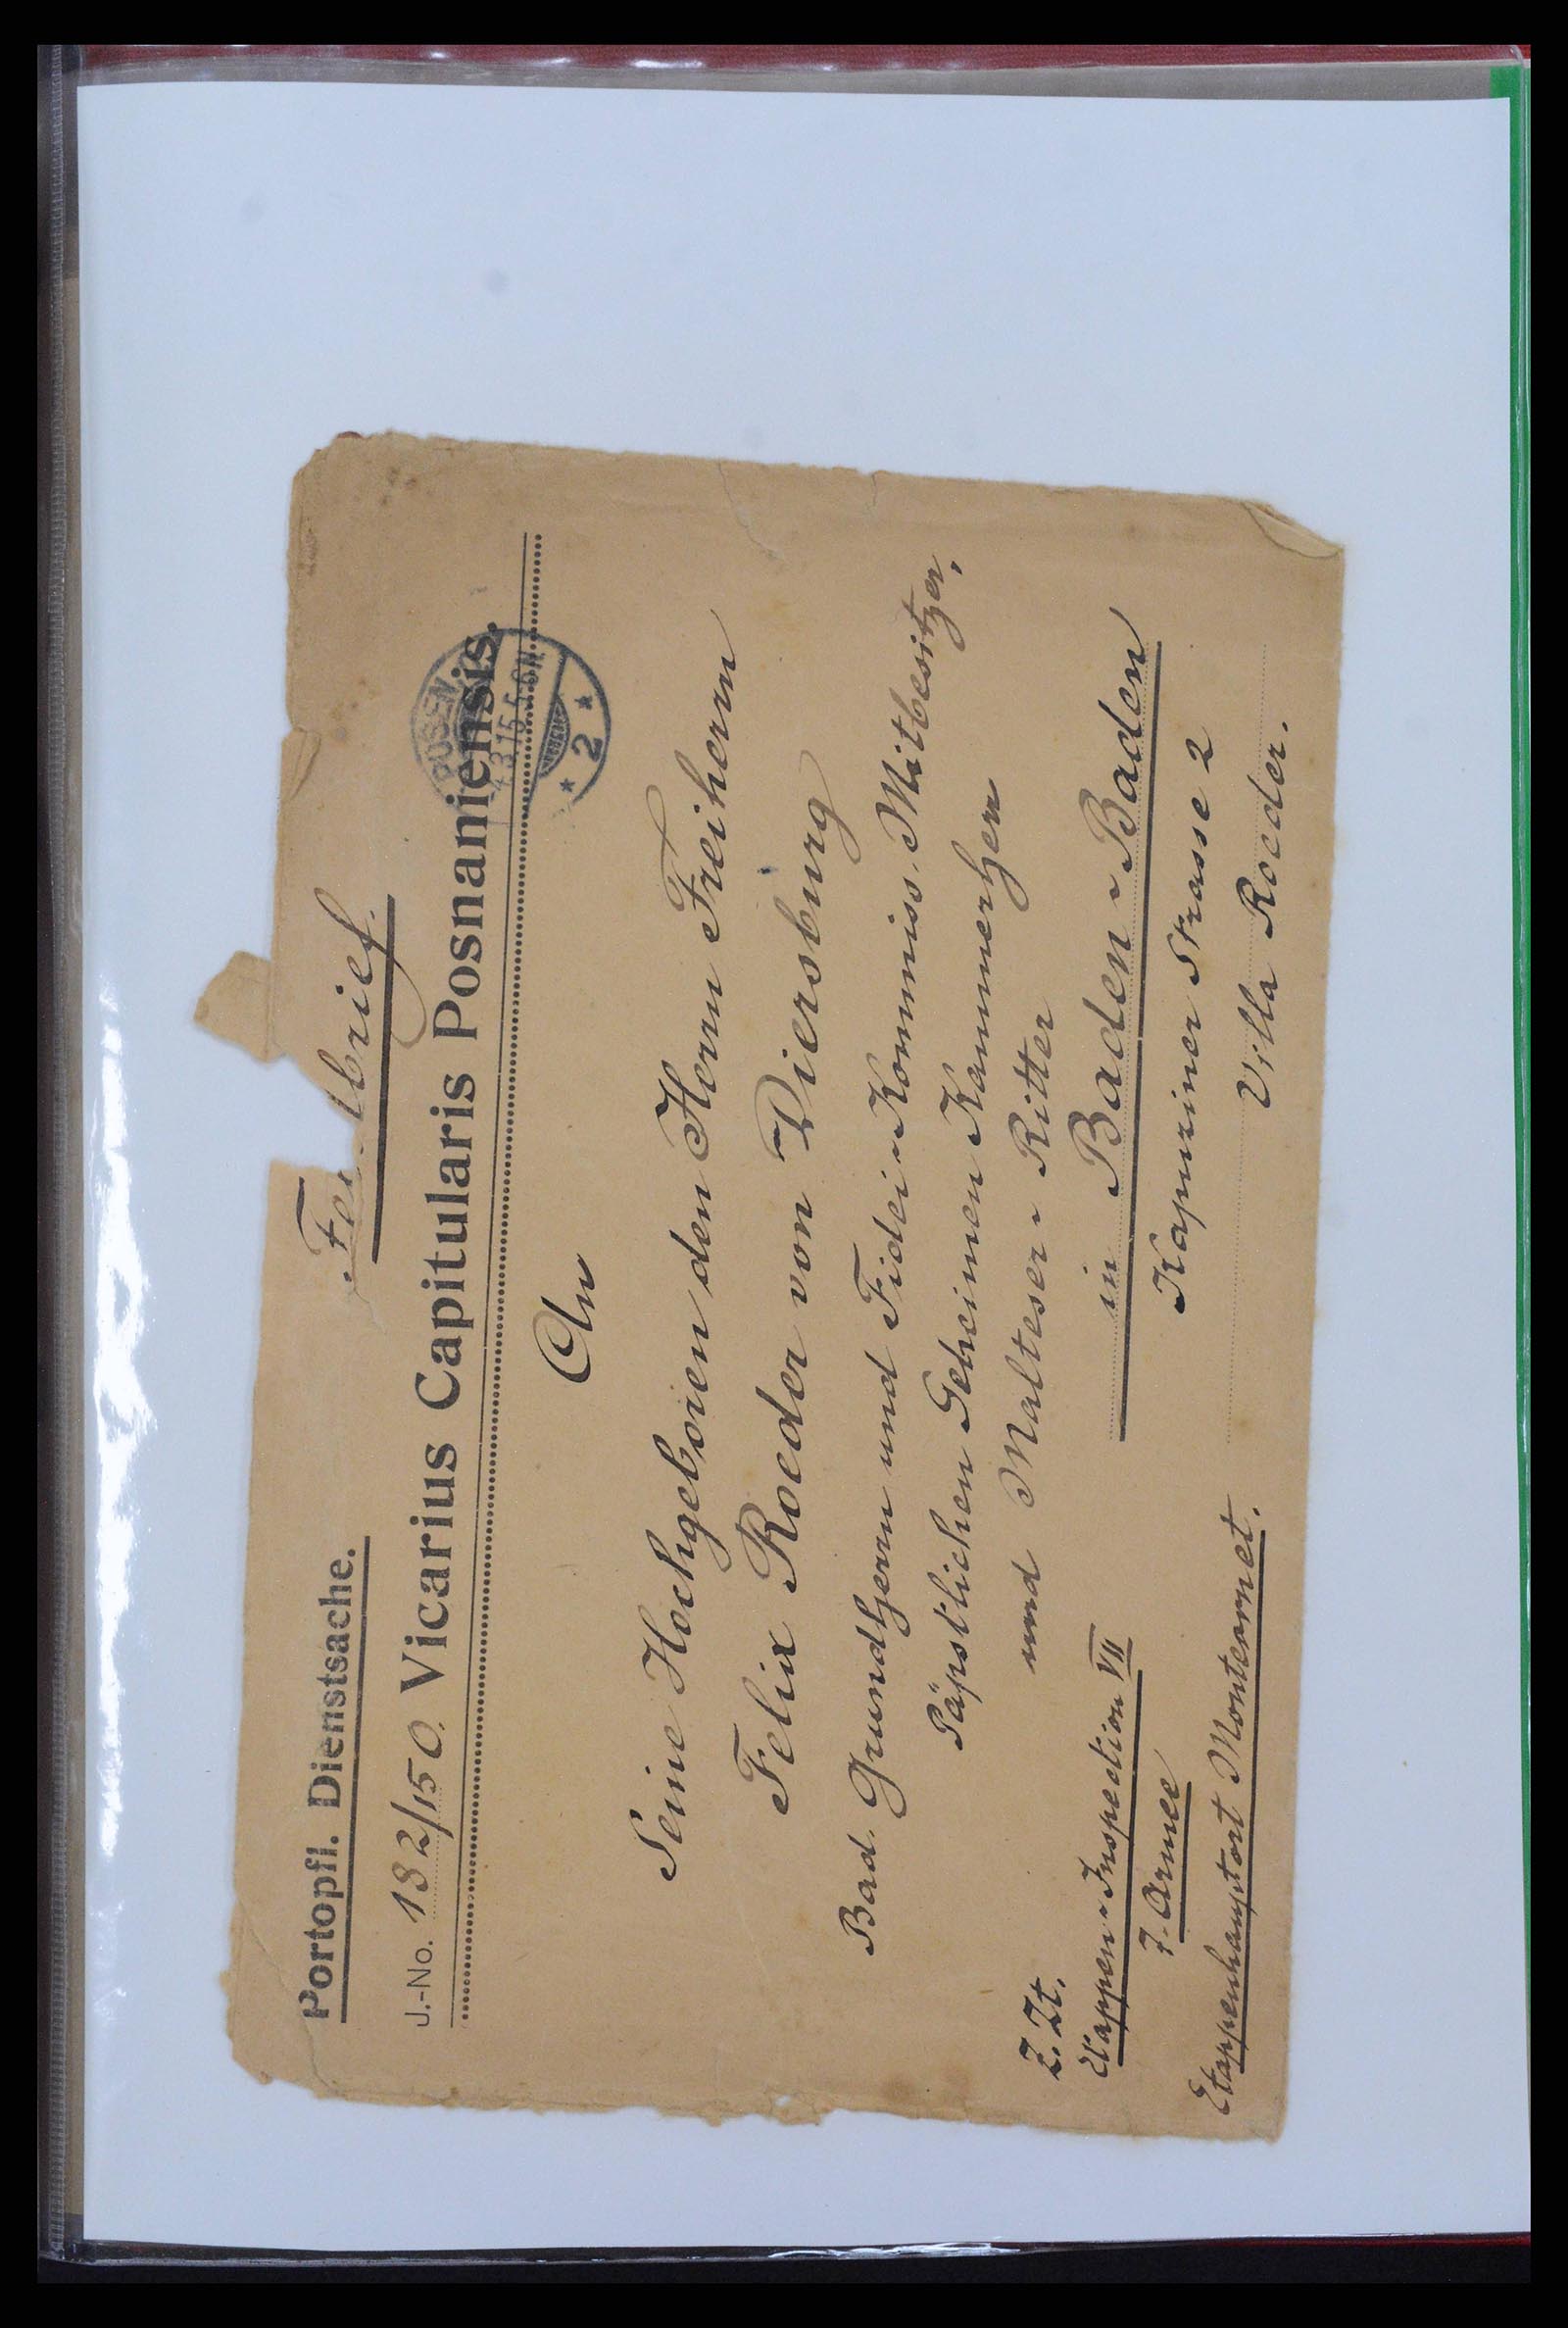 Portopfl. Dienstsache.
brief.
J.-No. 182/15 O. Vicarius Capitularis Posnaniensis.
POSEN
3.15.5-6N.
* 2 *
An
Seine Hochgeboren den Herrn Freiherrn
Felix Roeder von Diersburg
Bad. Grundherrn und Fidei-Kommiss-Mitbesitzer,
Päpstlichen Geheimen Kammerherrn
und Malteser-Ritter
in Baden-Baden
Kapuziner Strasse 2
Villa Roeder.
Z. Zt.
Etappen-Inspection VII
7. Armee
Etappenhauptort Montcornet.